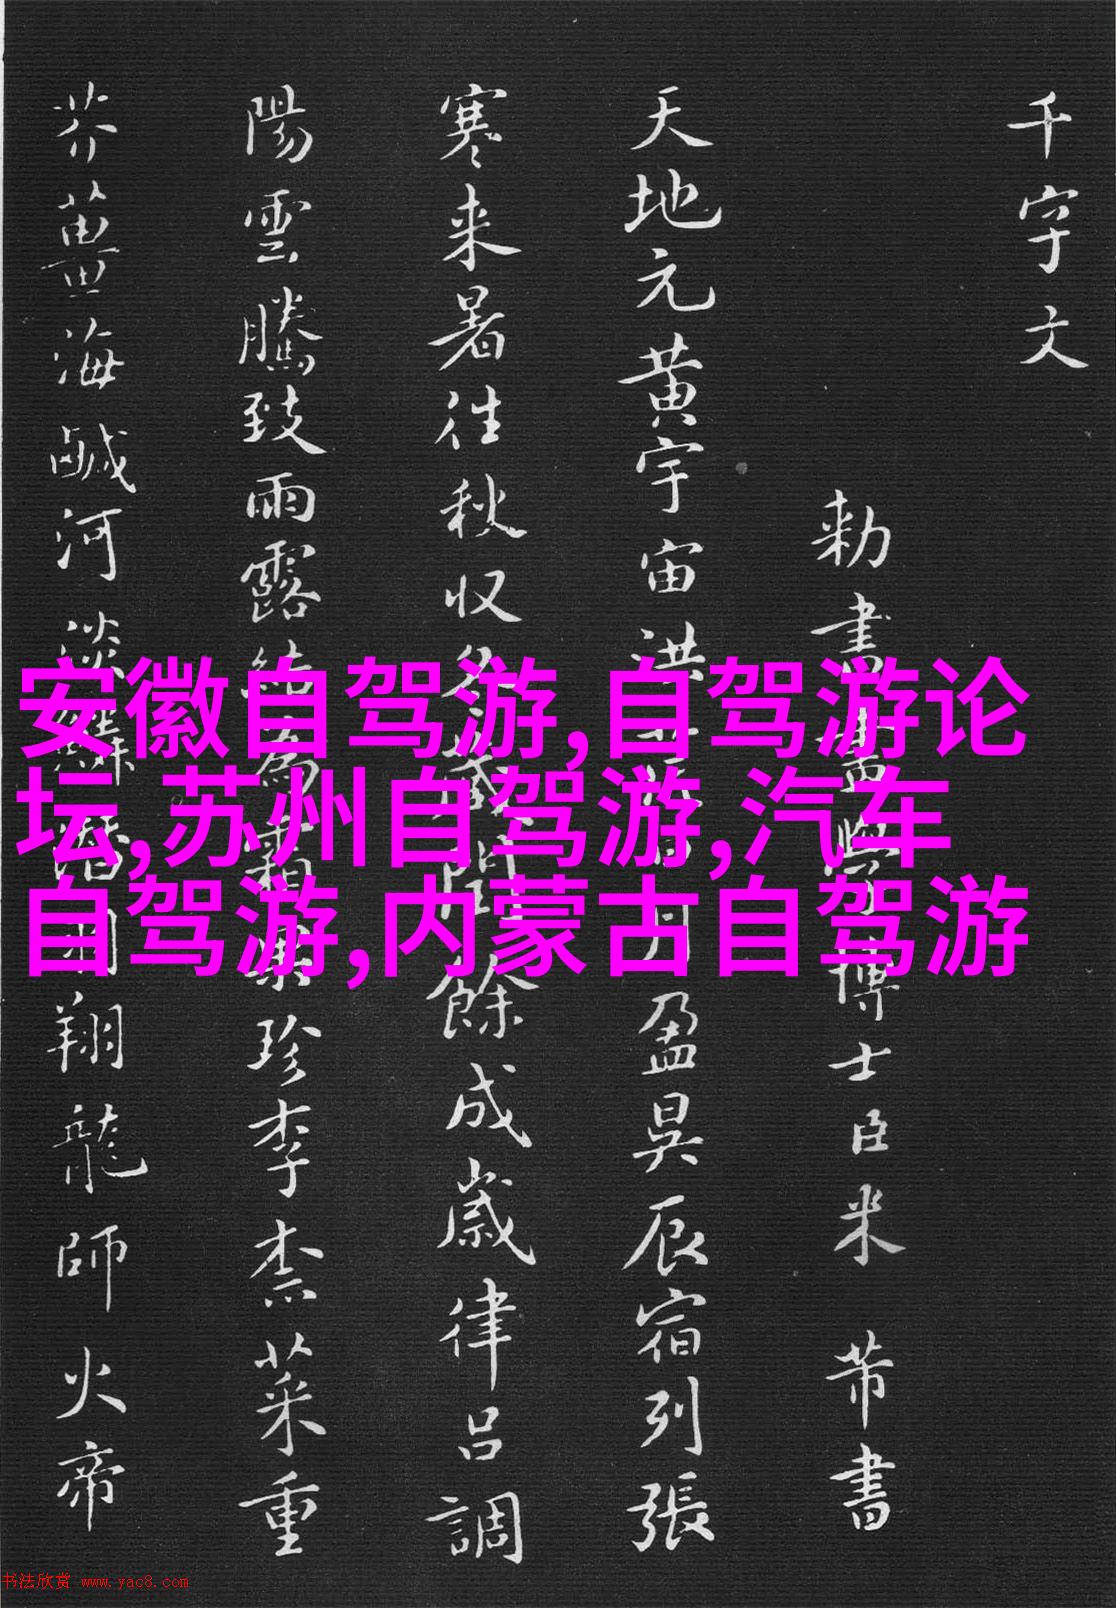 千字文
勅書畫學博士臣米芾書
天地元黄宇宙洪荒日月盈昃辰宿列張
寒来暑往秋収冬藏閏餘成歲律呂調
陽雲騰致雨露結為霜果珍李柰菜重
芥薑海鹹河淡鱗潛羽翔龍師火帝
安徽自驾游,自驾游论
坛,苏州自驾游,汽车
自驾游,内蒙古自驾游
书法欣赏 www.yac8.com